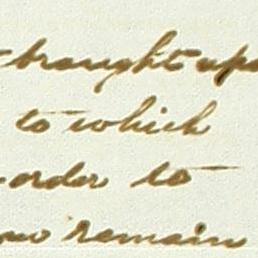 brought upo
to which
order to
remain